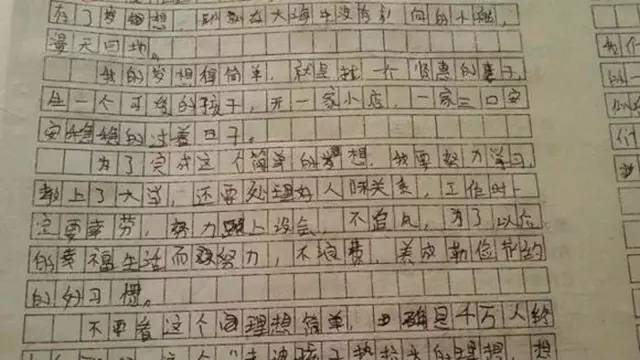 在大海中没有方向的小船，
漫天四地。
我的梦想很简单，就是找一个贤惠的妻子，
生一个可爱的孩子，开一家小店，一家三口安
安稳稳的过着日子。
为了完成这个简单的梦想，我要努力学习，
考上了大学，还要处理好人际关系，工作时一
定要辛劳，努力跟上设会，不自，为了以后
的幸福生活而努力，不浪费，养成勤俭节约
的好习惯。
不要看这个理想简单，也确是千万人终
孩子热炕头的理想